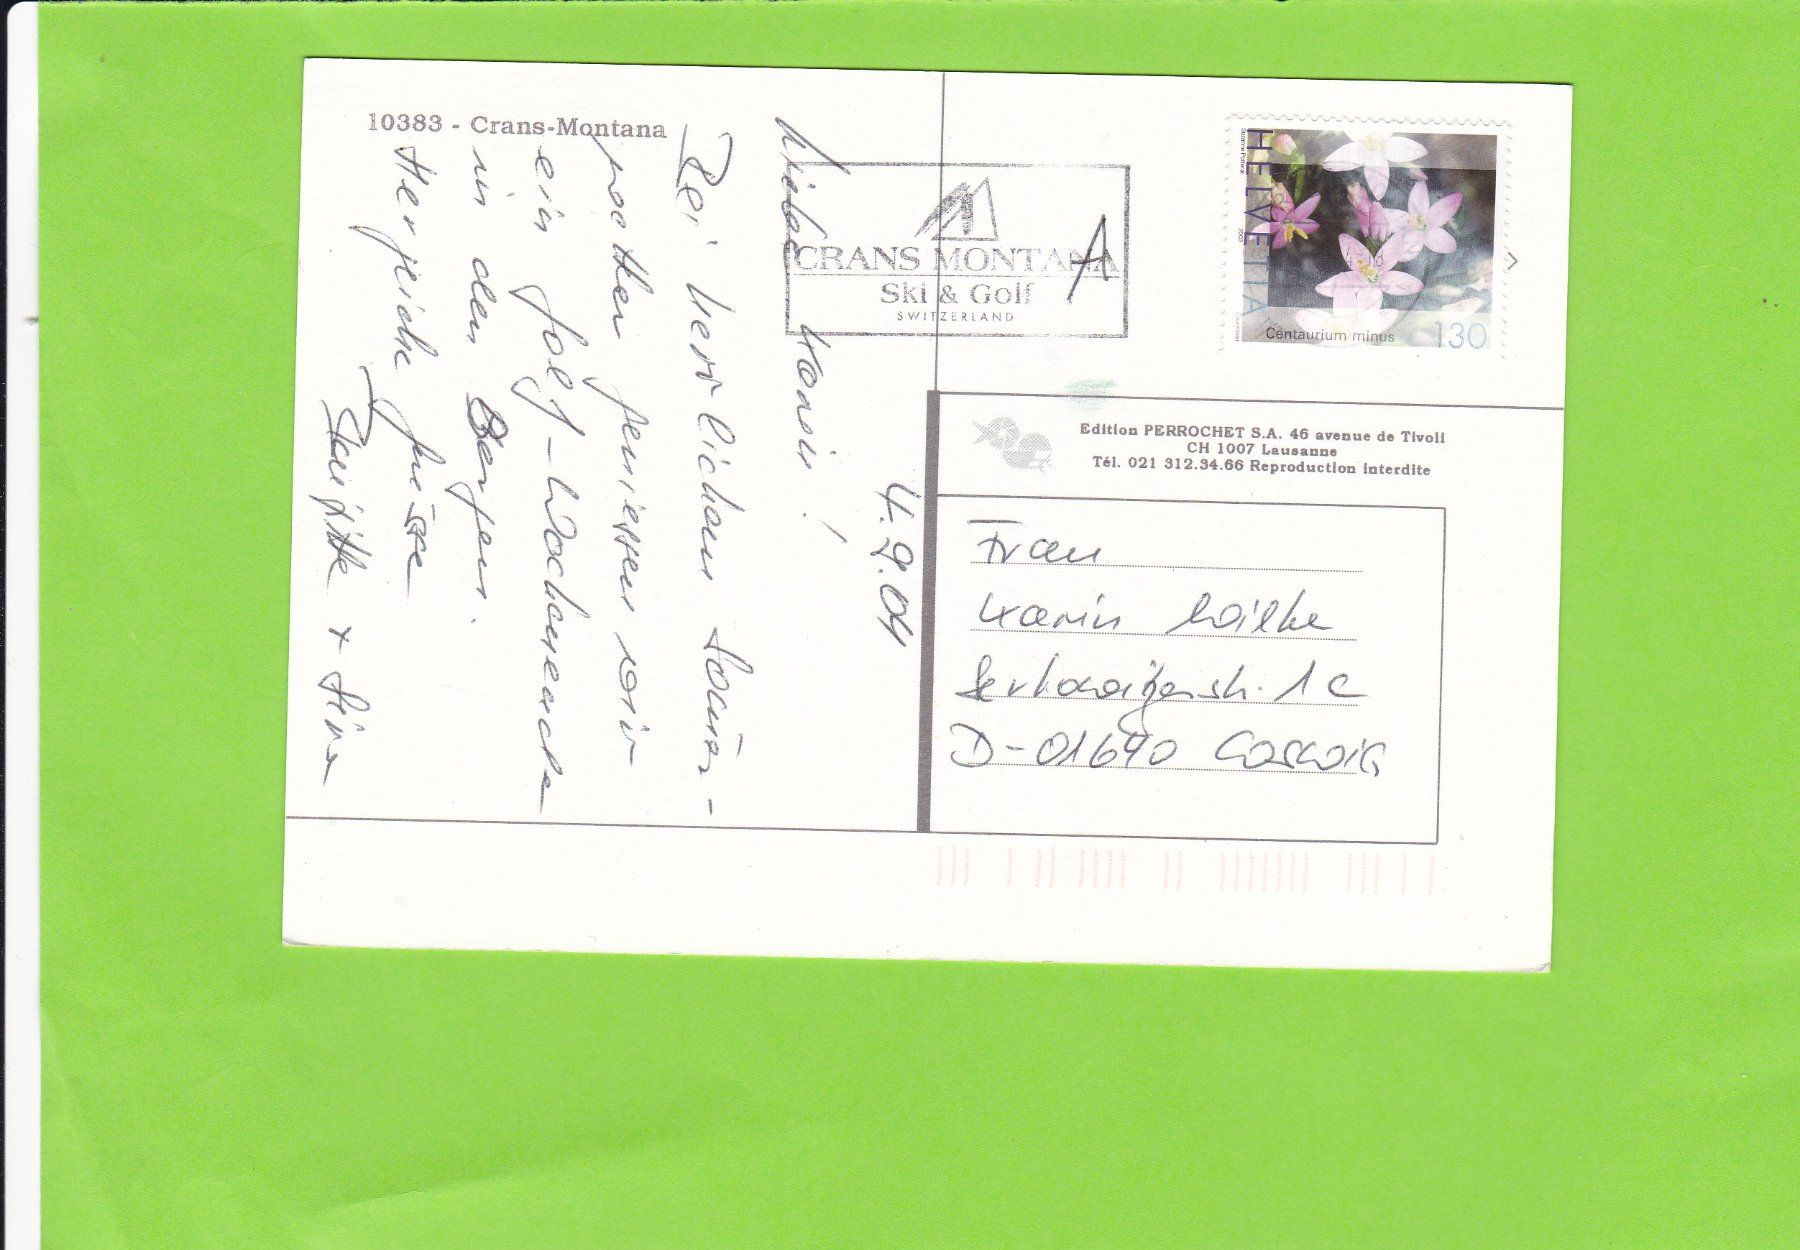 10383 - Crans-Montana
4.9.04
Liebe Karin!
Bei herrlichem Sommer-
wetter geniessen wir
ein Golf-Wochenende
in den Bergen.
Herzliche Grüsse
Brigitte +
CRANS MONTANA
Ski & Golf
SWITZERLAND
A
HELVETIA
2003
Centaurium minus
130
Edition PERROCHET S.A. 46 avenue de Tivoli
CH 1007 Lausanne
Tél. 021 312.34.66 Reproduction interdite
Frau
Karin Wilke
1c
D-01640 Coswig